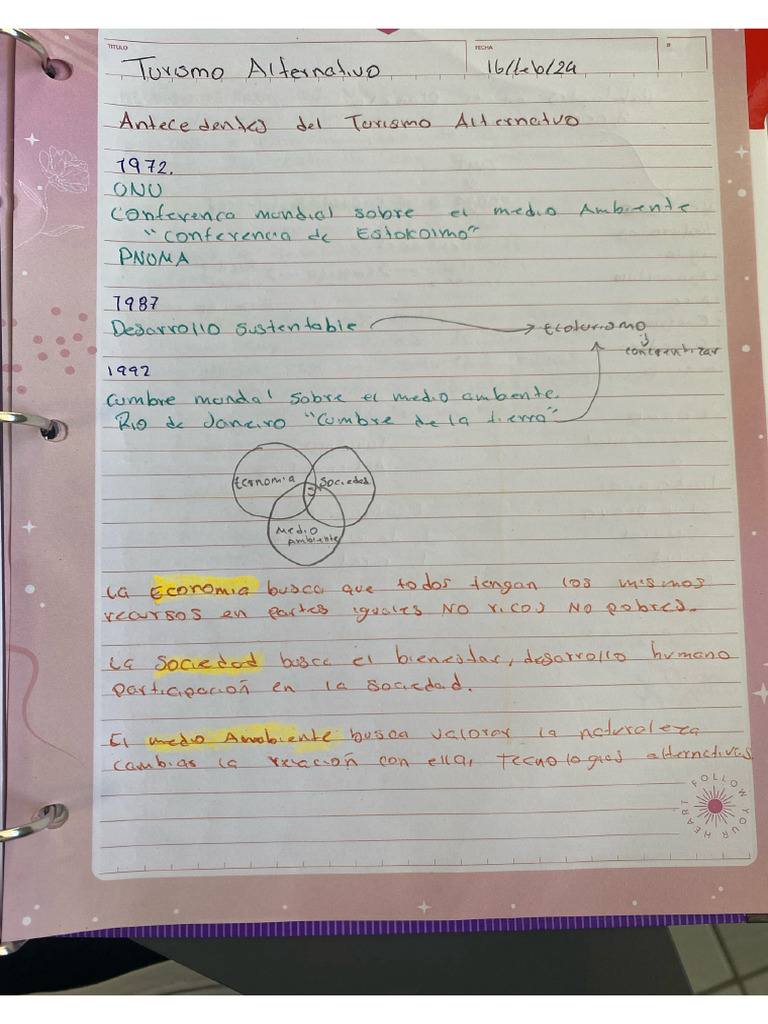 TITULO
FECHA
Turismo Alternativo
16/feb/24
Antecedentes del Turismo Alternativo
1972.
ONU
Conferenca mundial sobre el medio Ambiente
"Conferencia de Estokolmo"
PNUMA
1987
Desarrollo sustentable
Ecoturismo
concientizar
1992
Cumbre mundal sobre el medio ambiente.
Rio de Janeiro "Cumbre de la tierra"
Economia
Sociedad
Medio
Ambiente
La Economia busca que todos tengan los mismos
recursos en partes iguales NO ricos NO pobres.
La Sociedad busca el bienestar, desarrollo humano
participación en la sociedad.
El medio Ambiente busca valorar la naturaleza
cambias la relación con ella, Tecnologias alternativas
FOLLOW YOUR HEART